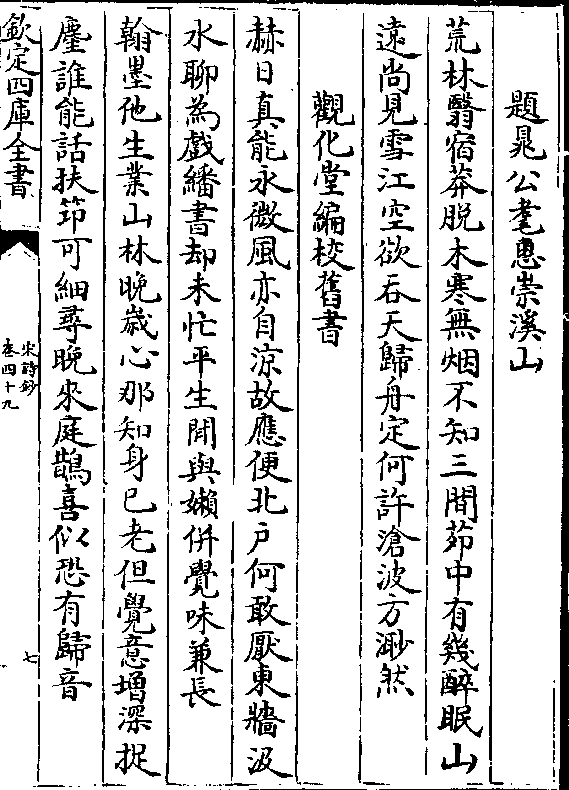 題晁公耄惠崇溪山
荒林翳宿莽脱木寒無烟不知三間茆中有幾醉眠山
遠尚見雪江空欲吞天歸舟定何許滄波方渺然
觀化堂編校舊書
赫日真能永微風亦自涼故應便北户何敢厭東牆汲
水聊為戲繙書却未忙平生閒與嬾併覺味兼長
翰墨他生業山林晚嵗心那知身已老但覺意增深捉
麈誰能話扶笻可細尋晚來庭鵲喜似恐有歸音
欽定四庫全書
宋詩鈔
卷四十九
七